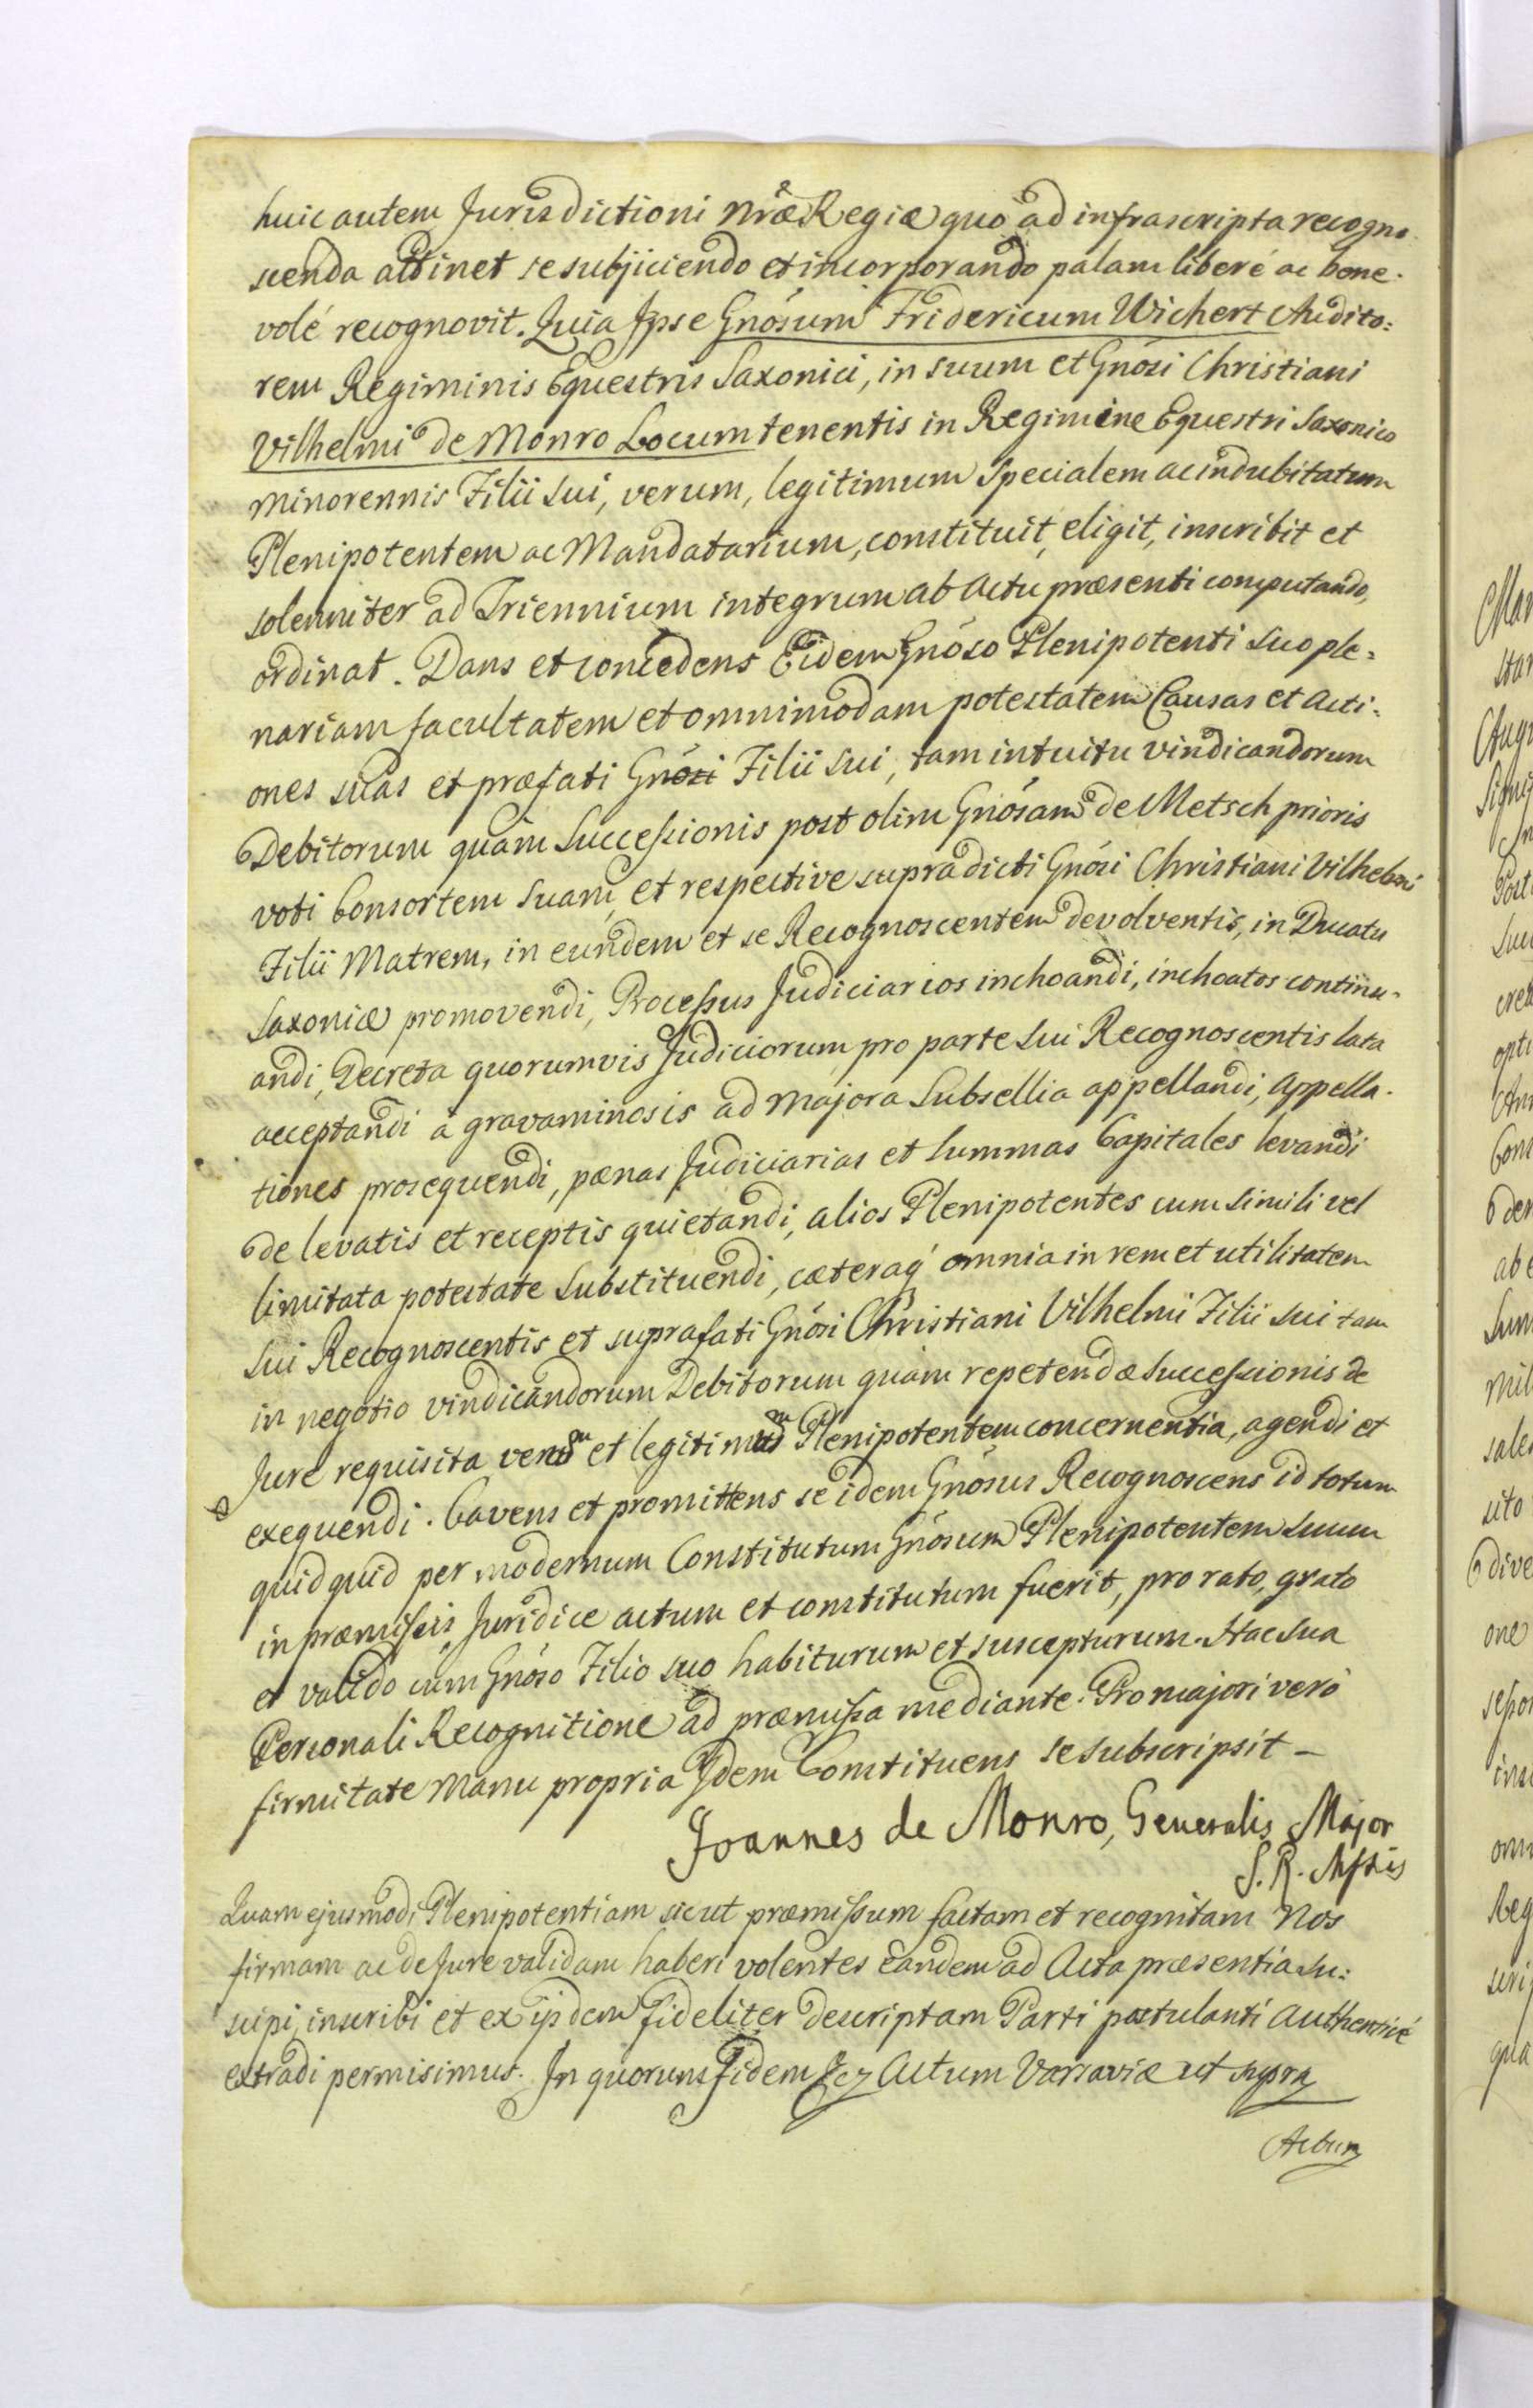 huic autem Jurisdictioni Nræ Regiæ quo ad infrascripta recogno
scenda attinet se subjiciendo et incorporando palam liberé ac bene-
volé recognovit. Quia Ipse Gnósum Fridericum Wichert Audito:
rem Regiminis Equestris Saxonici, in suum et Gnósi Christiani
Vilhelmi de Monro Locumtenentis in Regimine Equestri Saxonico
minorennis Filii sui, verum, legitimum specialem ac indubitatum
Plenipotentem ac Mandatarium, constituit, eligit, inscribit et
solenniter ad Triennium integrum ab Actu præsenti computando,
ordinat. Dans et concedens Eidem Gnóso Plenipotenti suo ple:
nariam facultatem et omnimodam potestatem Causas et Acti:
ones suas et præfati Gnósi Filii sui, tam intuitu vindicandorum
Debitorum quàm Successionis post olim Gnósam de Metsch prioris
voti Consortem suam, et respective supradicti Gnósi Christiani Vilhelmi
Filii Matrem, in eundem et se Recognoscentem devolventis, in Ducatu
Saxoniæ promovendi, Processus Judiciarios inchoandi, inchoatos continu-
andi, Decreta quorumvis Judiciorum pro parte sui Recognoscentis lata
acceptandi à gravaminosis ad majora Subsellia appellandi, Appella-
tiones prosequendi, pænas Judiciarias et Summas Capitales levandi
de levatis et receptis quietandi, alios Plenipotentes cum simili vel
limitata potestate substituendi, cæteraq́ omnia in rem et utilitatem
sui Recognoscentis et suprafati Gnósi Christiani Vilhelmi Filii sui tam
in negotio vindicandorum Debitorum quàm repetendæ Successionis de
Jure requisita verum et legitimum Plenipotentem concernentia, agendi et
exequendi. Cavens et promittens se idem Gnósus Recognoscens id totum
quidquid per modernum Constitutum Gnósum Plenipotentem suum
in præmissis Juridice actum et constitutum fuerit, pro rato, grato
et valido cum Gnóso Filio suo habiturum et suscepturum. Hac sua
Personali Recognitione ad præmissa mediante. Pro majori verò
firmitate Manu propria Idem Constituens se subscripsit –
Joannes de Monro, Generalis Major
S. R. Mttis
Quam ejusmodi Plenipotentiam sicut præmissum factam et recognitam Nos
firmam ac de Jure validam haberi volentes eandem ad Acta præsentia su:
scipi, inscribi et ex ijsdem fideliter descriptam Parti postulanti Authenticé
extradi permisimus. In quorum Fidem &c Actum Varsaviæ ut supra